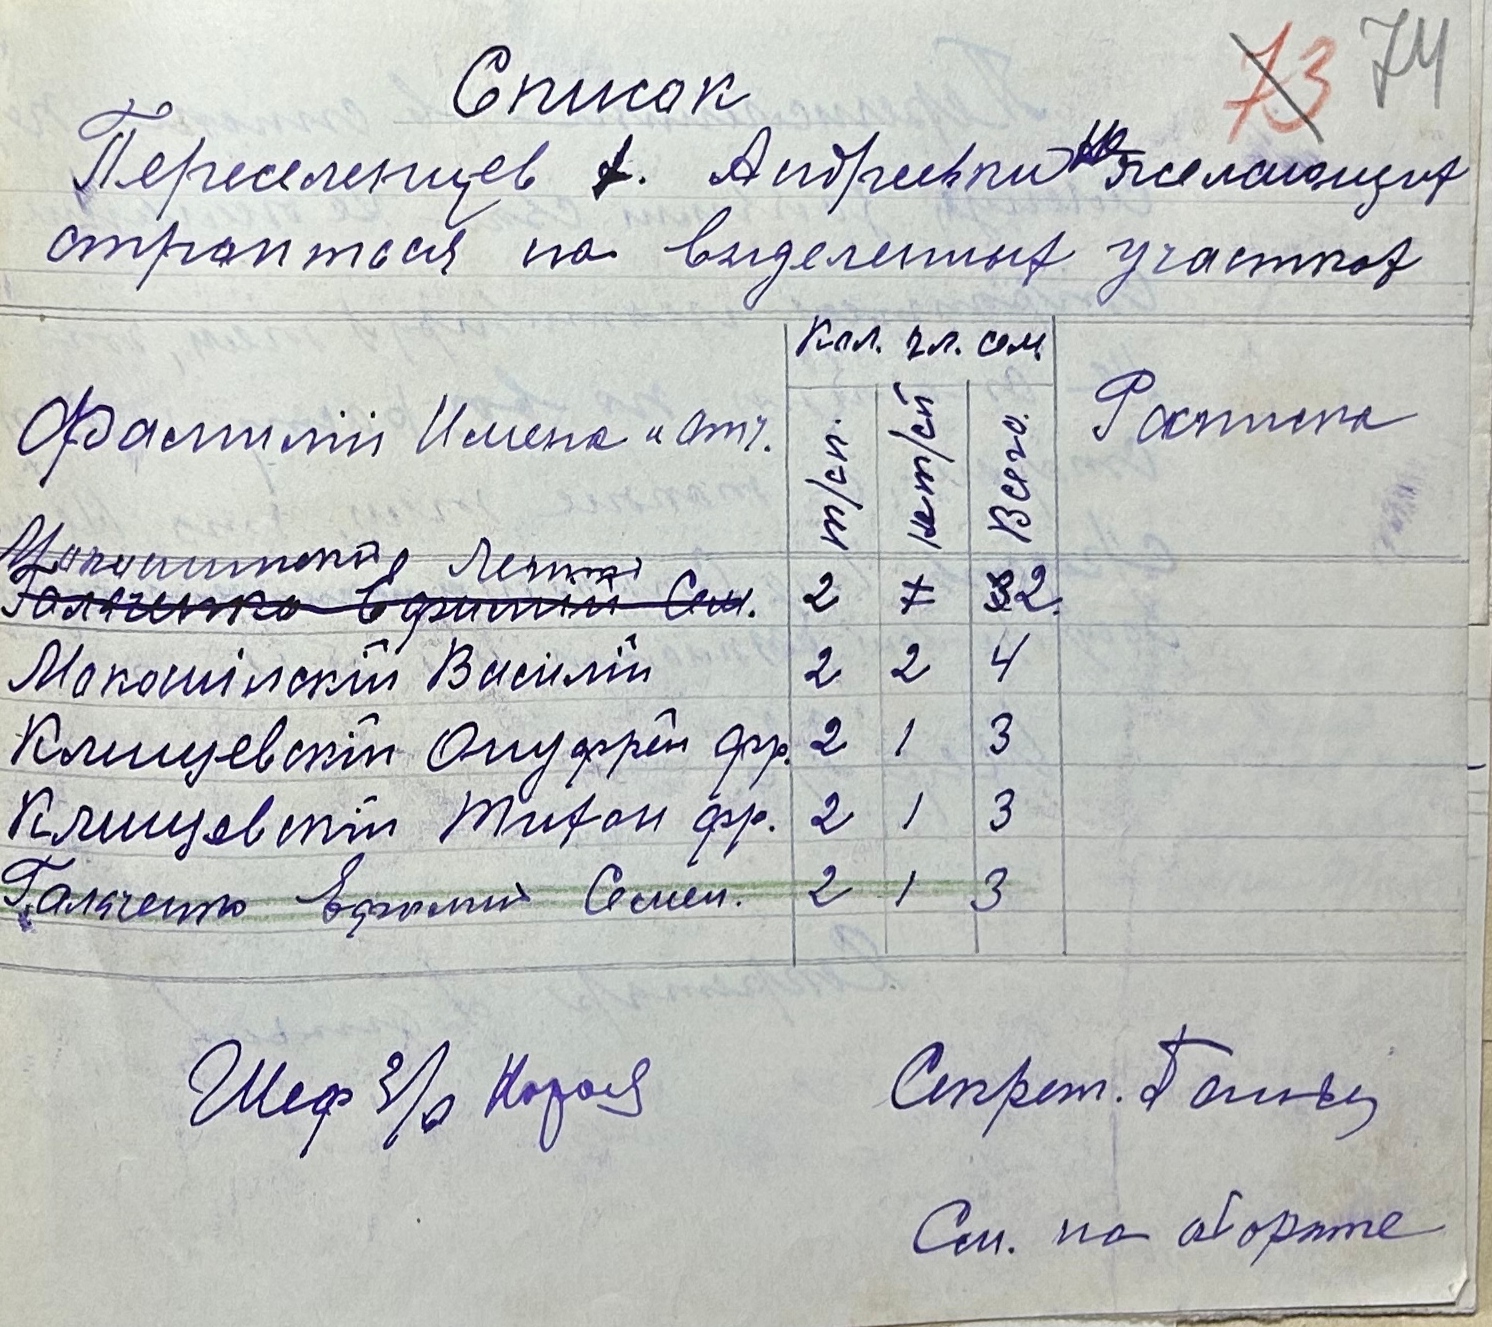 73 74
Список
Переселенцев х. Андреевки не желающих
строится на выделенных участках
Фамилій Имена и отч. Кол. чл. сем. Расписка
т/сп. нет/сп Всего.
Галяченко Ефимий Сем. 2 32.
Макошілскій Василій 2 2 4
Клищевскій Онуфрей Фр. 2 1 3
Клищевскій Тихон Фр. 2 1 3
Галяченко Ефимий Семен. 2 1 3
Шеф З/о Секрет.
См. на обороте